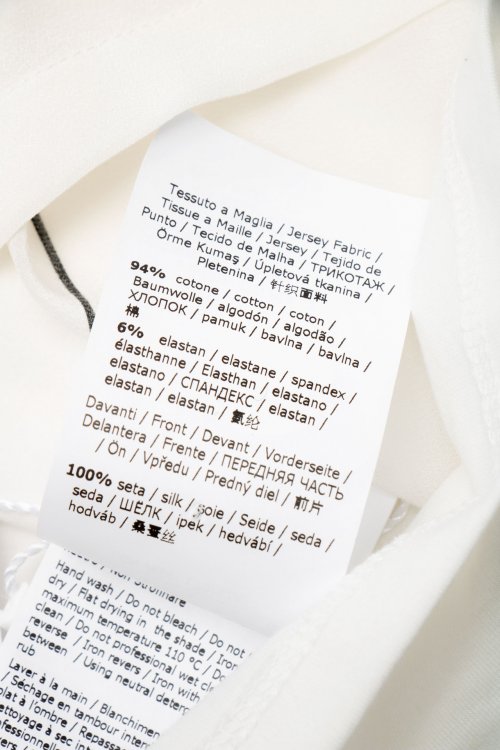 Tessuto a Maglia / Jersey Fabric /
Tissue a Maille / Jersey / Tejido de
Punto / Tecido de Malha / ТРИКОТАЖ /
Örme Kumaş / Úpletová tkanina /
Pletenina / 针织面料
94% cotone / cotton / coton /
Baumwolle / algodón / algodão /
ХЛОПОК / pamuk / bavlna / bavlna /
棉
6% elastan / elastane / spandex /
élasthanne / Elasthan / elastano /
elastano / СПАНДЕКС / elastan /
elastan / elastan / 氨纶
Davanti / Front / Devant / Vorderseite /
Delantera / Frente / ПЕРЕДНЯЯ ЧАСТЬ
/ Ön / Vpředu / Predný diel / 前片
100% seta / silk / soie / Seide / seda /
seda / ШЁЛК / ipek / hedvábí /
hodváb / 桑蚕丝
/ Non Strofinare
Hand wash / Do not bleach / Do not
dry / Flat drying in the shade / Iron
maximum temperature 110 °C / Do
clean / Do not professional wet cl
reverse / Iron revers / Iron with
between / Using neutral deterg
rub
Laver à la main / Blanchimen
/ Séchage en tambour inter
plat à l'ombre / Repassa
professionnelle
Nettoyage à sec inter